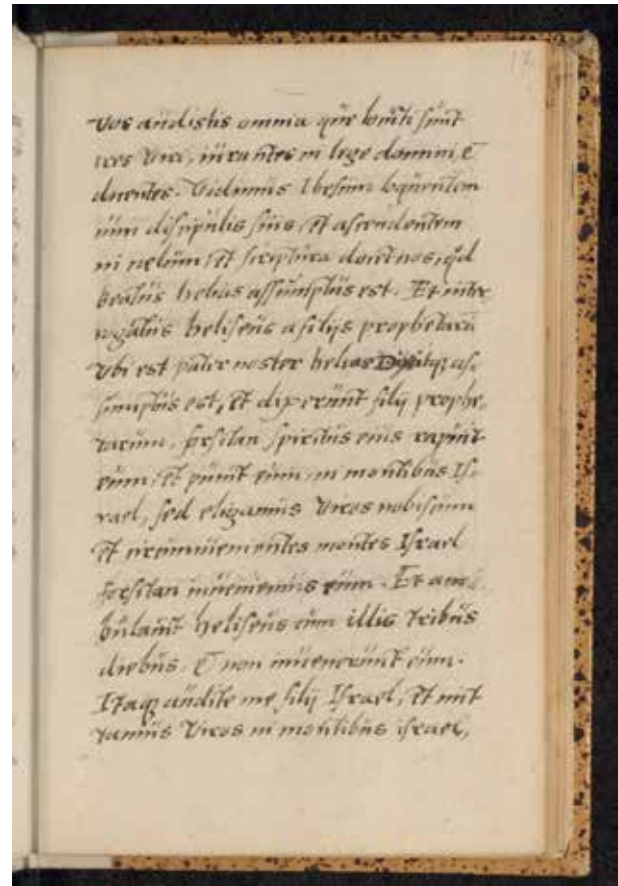 17
vos audistis omnia que locuti sunt
tres viri, iurantes in lege domini, &
dicentes. Vidimus Ihesum loquentem
cum discipulis suis, et ascendentem
in celum, et scriptura docet nos, qd
beatus helias assumptus est. Et inter
rogatus heliseus a filijs prophetarū
vbi est pater noster helias Dixitq; as-
sumptus est, et dixerunt filij prophe-
tarum, forsitan spiritus eius rapuit
eum, et punit eum, in montibus Is-
rael, sed eligamus viros nobiscum
et circumuenientes montes Israel
forsitan inueniemus eum. Et am-
bulauit heliseus cum illis tribus
diebus, & non inuenerunt eum.
Itaq; audite me filij Israel, et mit
tamus viros in montibus israel,